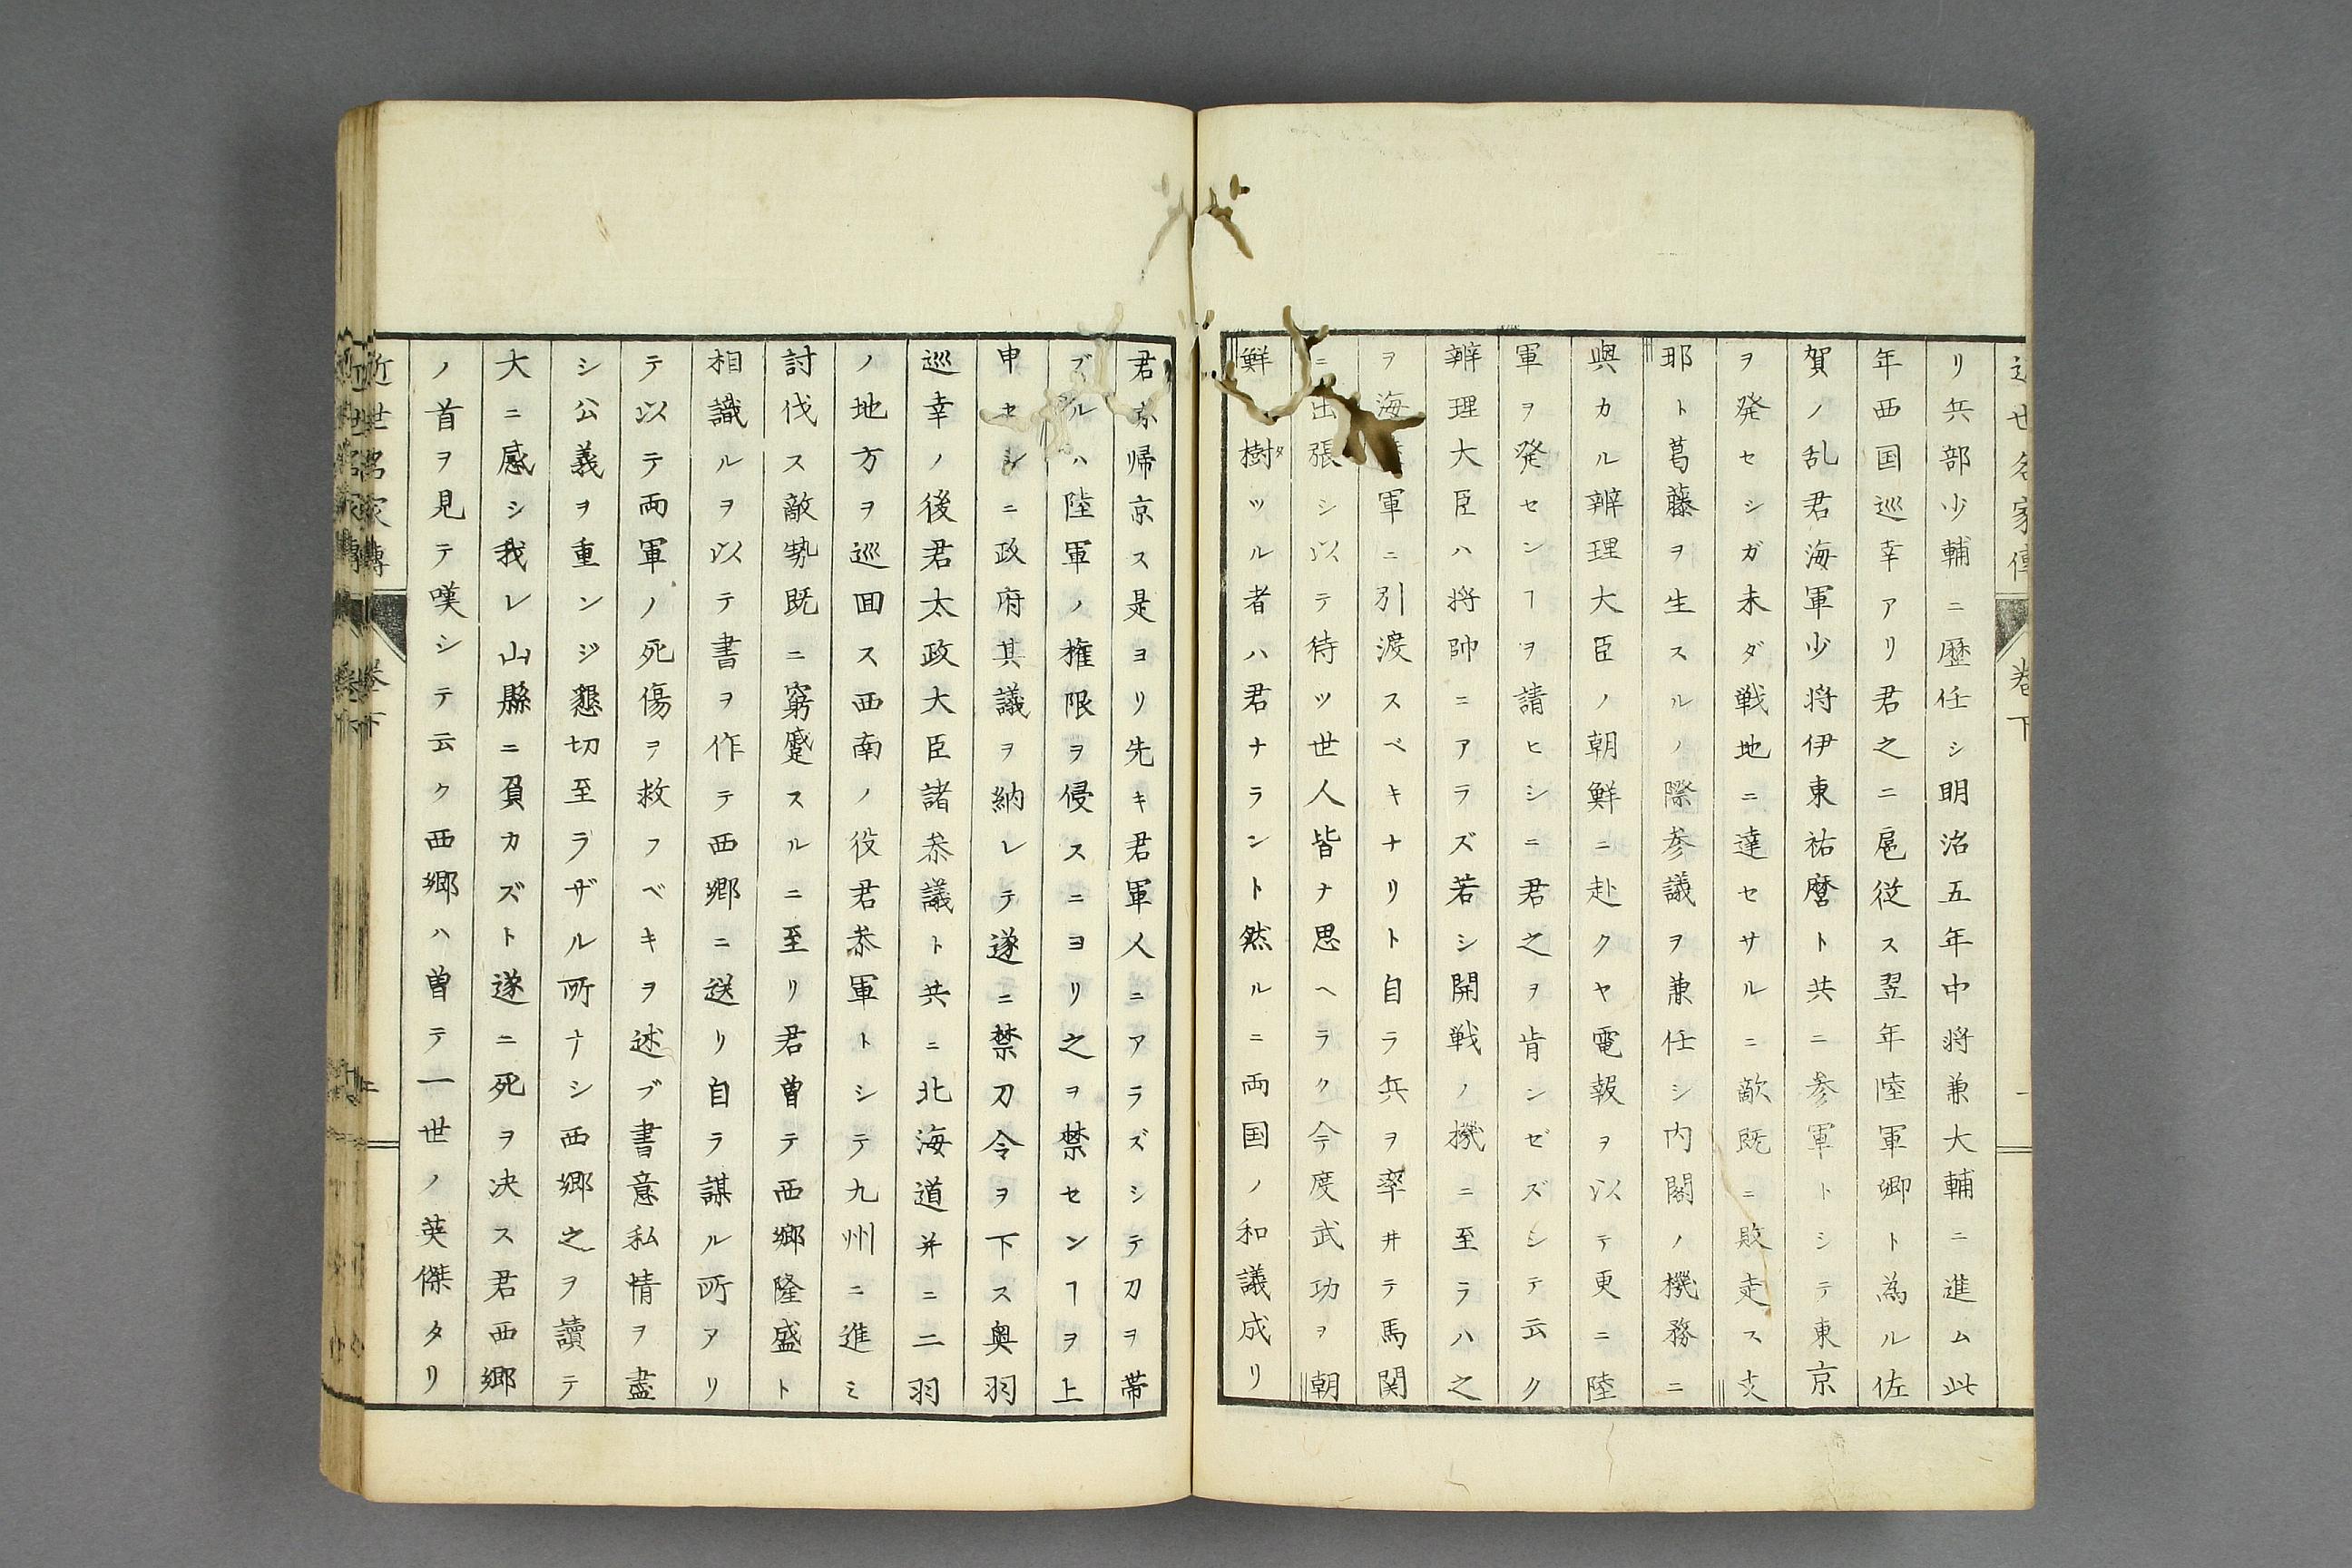 近世名家傳 卷下
リ兵部少輔ニ歴任シ明治五年中将兼大輔ニ進ム此
年西国巡幸アリ君之ニ扈従ス翌年陸軍卿ト為ル佐
賀ノ乱君海軍少将伊東祐麿ト共ニ参軍トシテ東京
ヲ発セシガ未ダ戦地ニ達セサルニ敵既ニ敗走ス支
那ト葛藤ヲ生スルノ際参議ヲ兼任シ内閣ノ機務ニ
與カル辨理大臣ノ朝鮮ニ赴クヤ電報ヲ以テ更ニ陸
軍ヲ発センヿヲ請ヒシニ君之ヲ肯ンゼズシテ云ク
辨理大臣ハ将帥ニアラズ若シ開戦ノ機ニ至ラハ之
ヲ海軍ニ引渡スベキナリト自ラ兵ヲ率井テ馬関
ニ出張シ以テ待ツ世人皆ナ思ヘラク今度武功ヲ朝
鮮樹ツル者ハ君ナラント然ルニ両国ノ和議成リ
君亦帰京ス是ヨリ先キ君軍人ニアラズシテ刀ヲ帯
ブルハ陸軍ノ権限ヲ侵スニヨリ之ヲ禁センヿヲ上
申セシニ政府其議ヲ納レテ遂ニ禁刀令ヲ下ス奥羽
巡幸ノ後君太政大臣諸参議ト共ニ北海道并ニ二羽
ノ地方ヲ巡回ス西南ノ役君参軍トシテ九州ニ進ミ
討伐ス敵勢既ニ窮蹙スルニ至リ君曽テ西郷隆盛ト
相識ルヲ以テ書ヲ作テ西郷ニ送リ自ラ謀ル所アリ
テ以テ両軍ノ死傷ヲ救フベキヲ述ブ書意私情ヲ盡
シ公義ヲ重ンジ懇切至ラザル所ナシ西郷之ヲ讀テ
大ニ感シ我レ山縣ニ負カズト遂ニ死ヲ决ス君西郷
ノ首ヲ見テ嘆シテ云ク西郷ハ曽テ一世ノ英傑タリ
近世名家傳 卷下